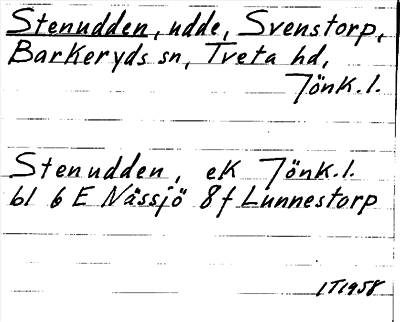 Stenudden, udde, Svenstorp,
Barkeryds sn, Tveta hd,
Jönk. l.
Stenudden, ek Jönk. l.
bl 6 E Nässjö 8f Lunnestorp
IT1958